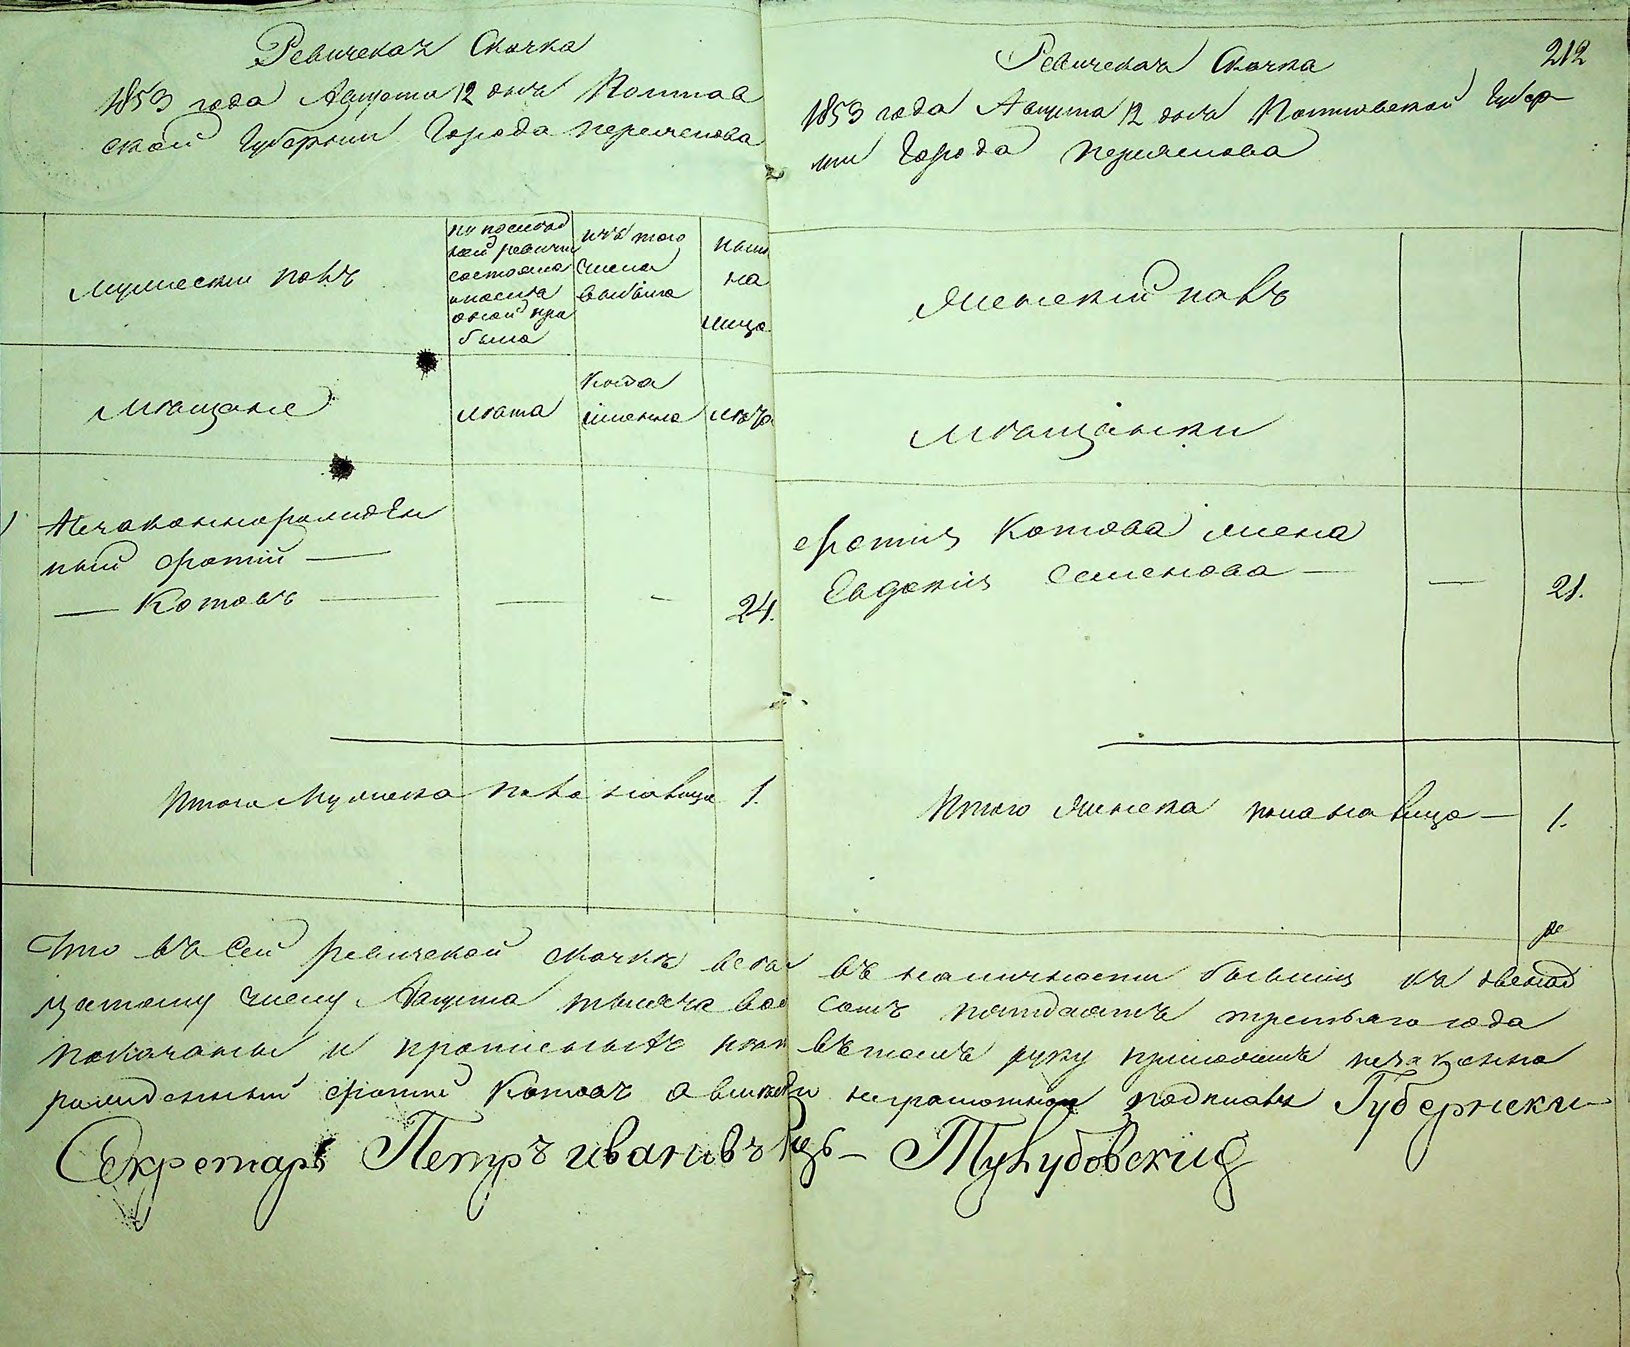 Ревизская Сказка
1853 года Августа 12 дня Полтав
ской Губернии Города Переяслова
Мужескій полъ
по послед
ней ревизіи
состояло
и после
оной при
было
изъ того
числа
выбыло
ныне
на
лицо
Мещане
лета
Когда
именно
летъ
Незаконнорожден
ный Фотій —
— Котовъ —
—
—
24.
Итого Мужеска пола на лицо 1.
212
Ревизская Сказка
1853 года Августа 12 дня Полтавской Губер
ніи Города Переяслова
Женскій полъ
Мещанки
Фотія Котова жена
Евдокія Семенова —
—
21.
Итого Женска пола на лицо — 1.
Что въ сей ревизской сказке все на въ наличности бывшія къ двенад
цатому числу Августа тысяча во сотъ пятдесятъ третьяго года
показаны и прописныхъ нетъ въ томъ руку приложилъ незаконно
рожденный Фотій Котовъ а вместо неграмотнаго подписалъ Губернски
Секретарь Петръ Ивановъ —